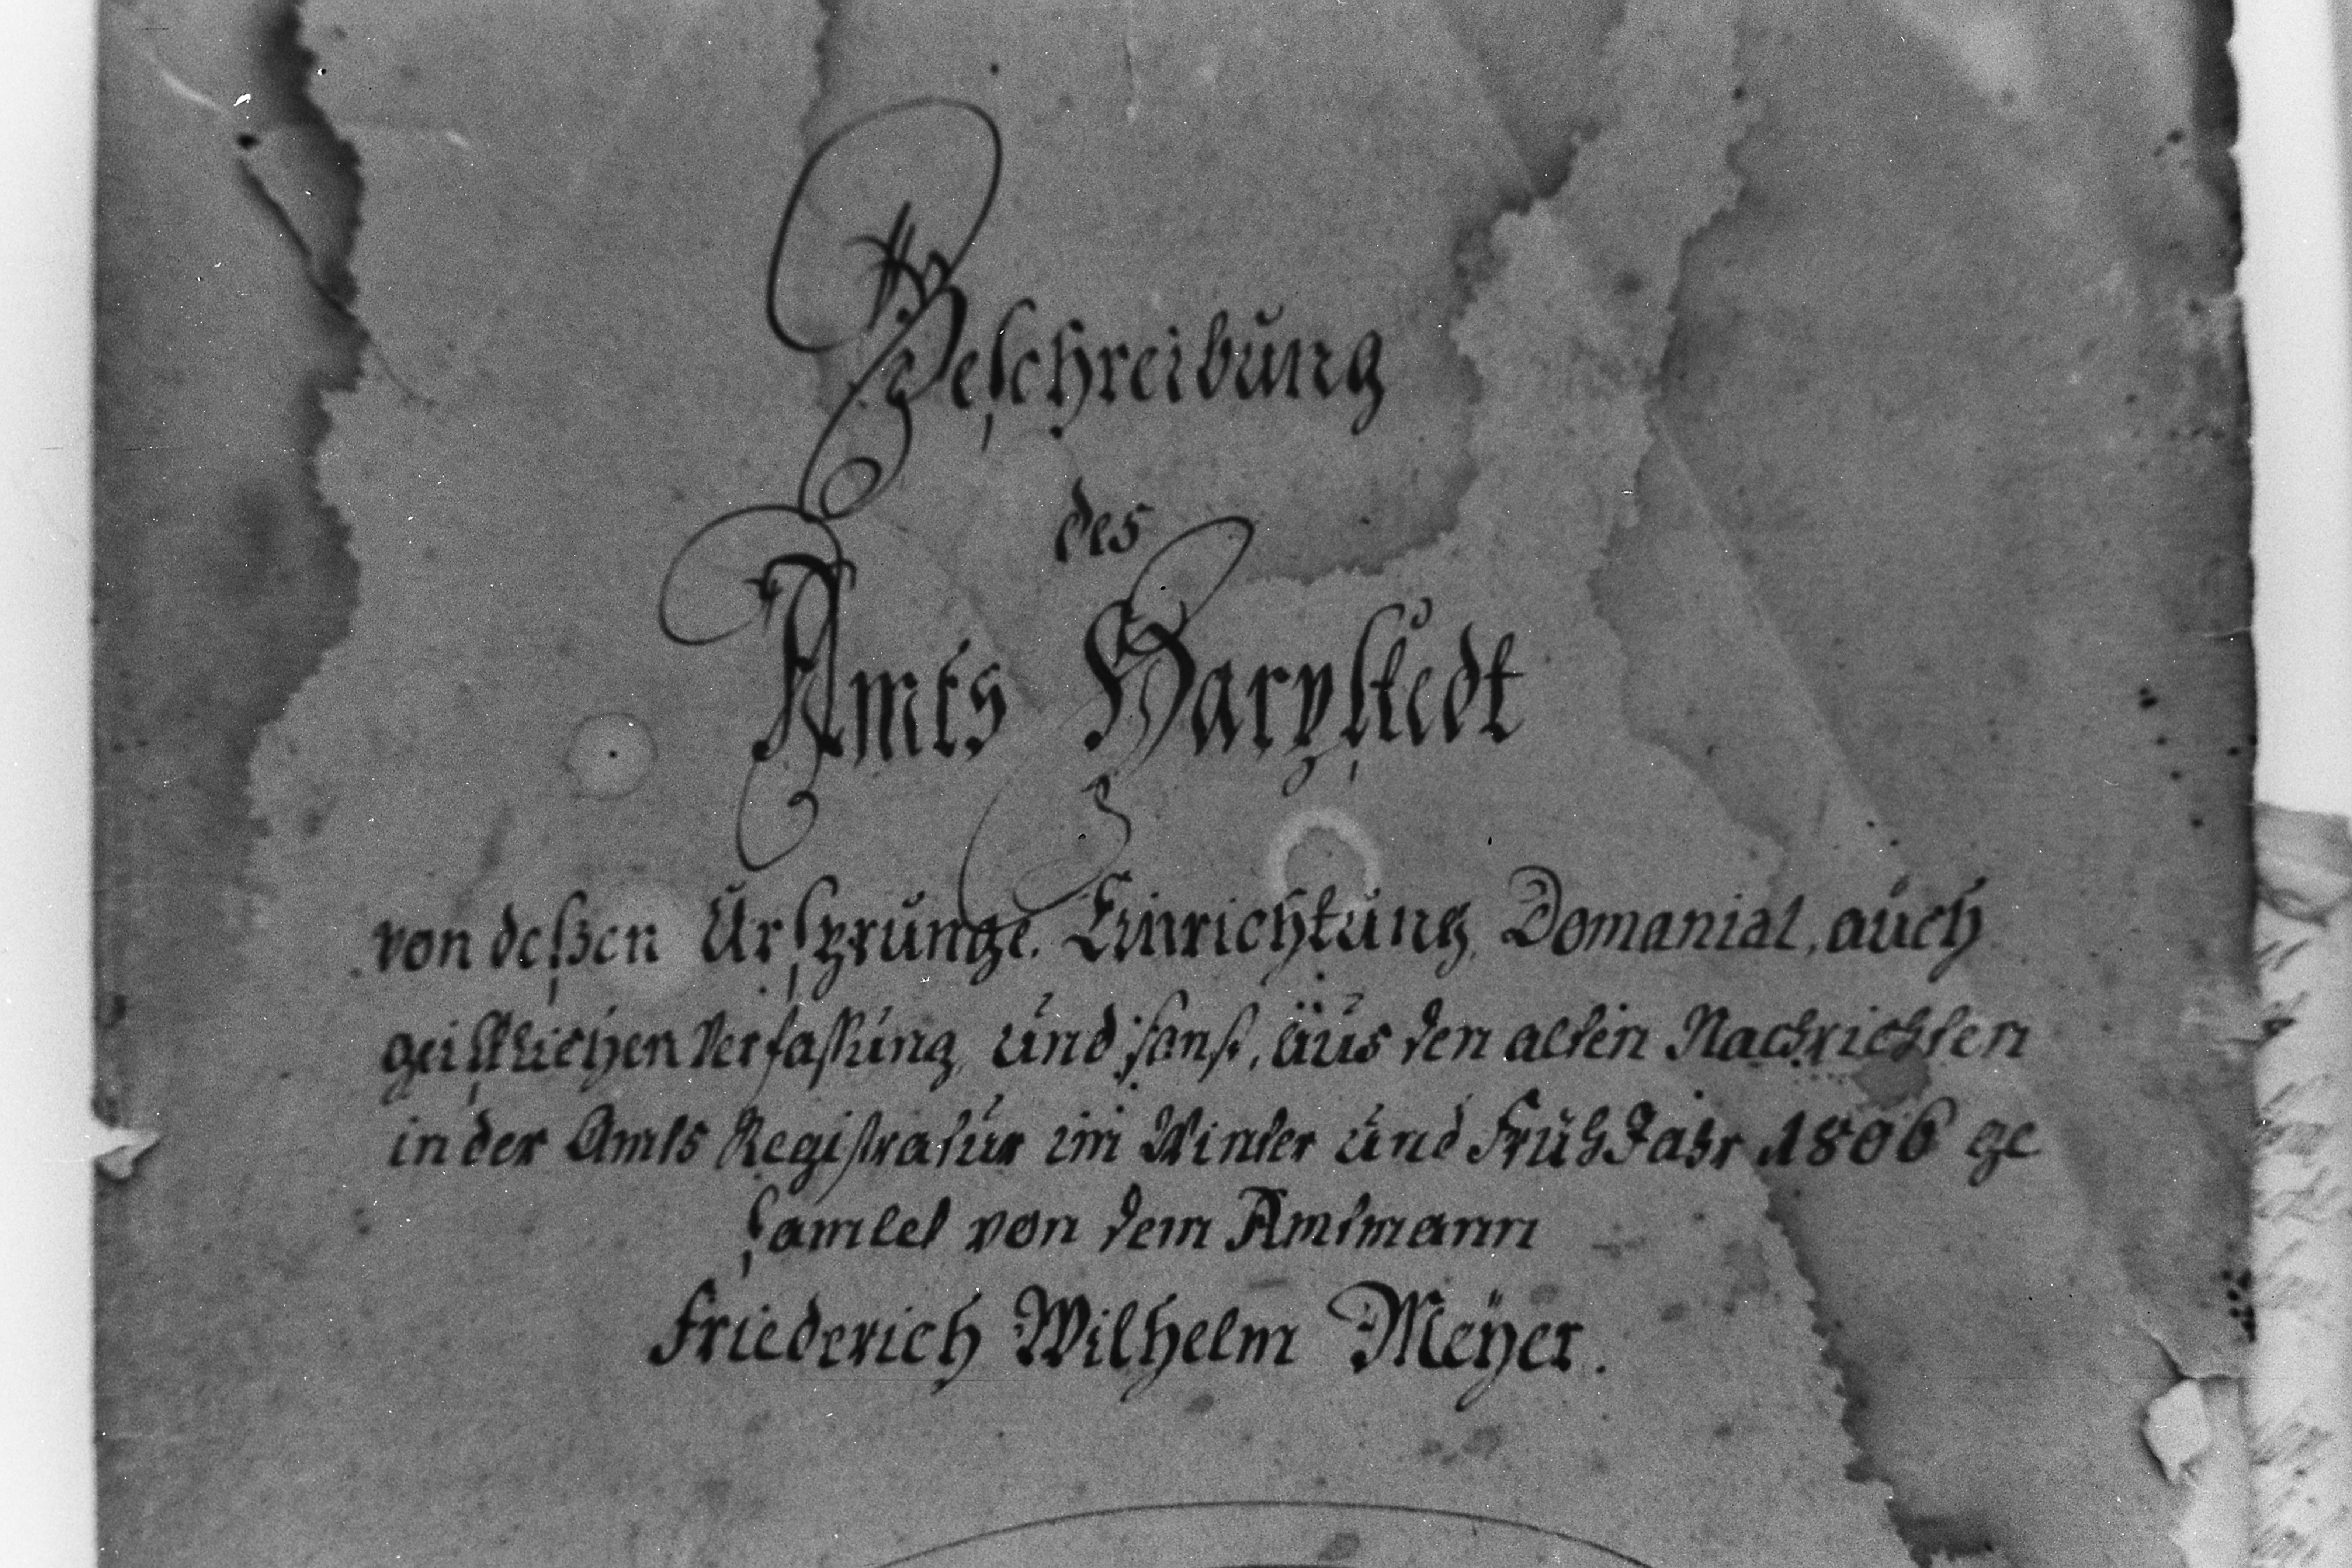 Beschreibung
des
Amts Harpstedt
von deßen Ursprunge, Einrichtung, Domanial, auch
geistlichen Verfaßung, und sonst, aus den alten Nachrichten
in der Amts Registratur im Winter und FrühJahr 1806 ge
samlet von dem Amtmann
Friederich Wilhelm Meÿer.